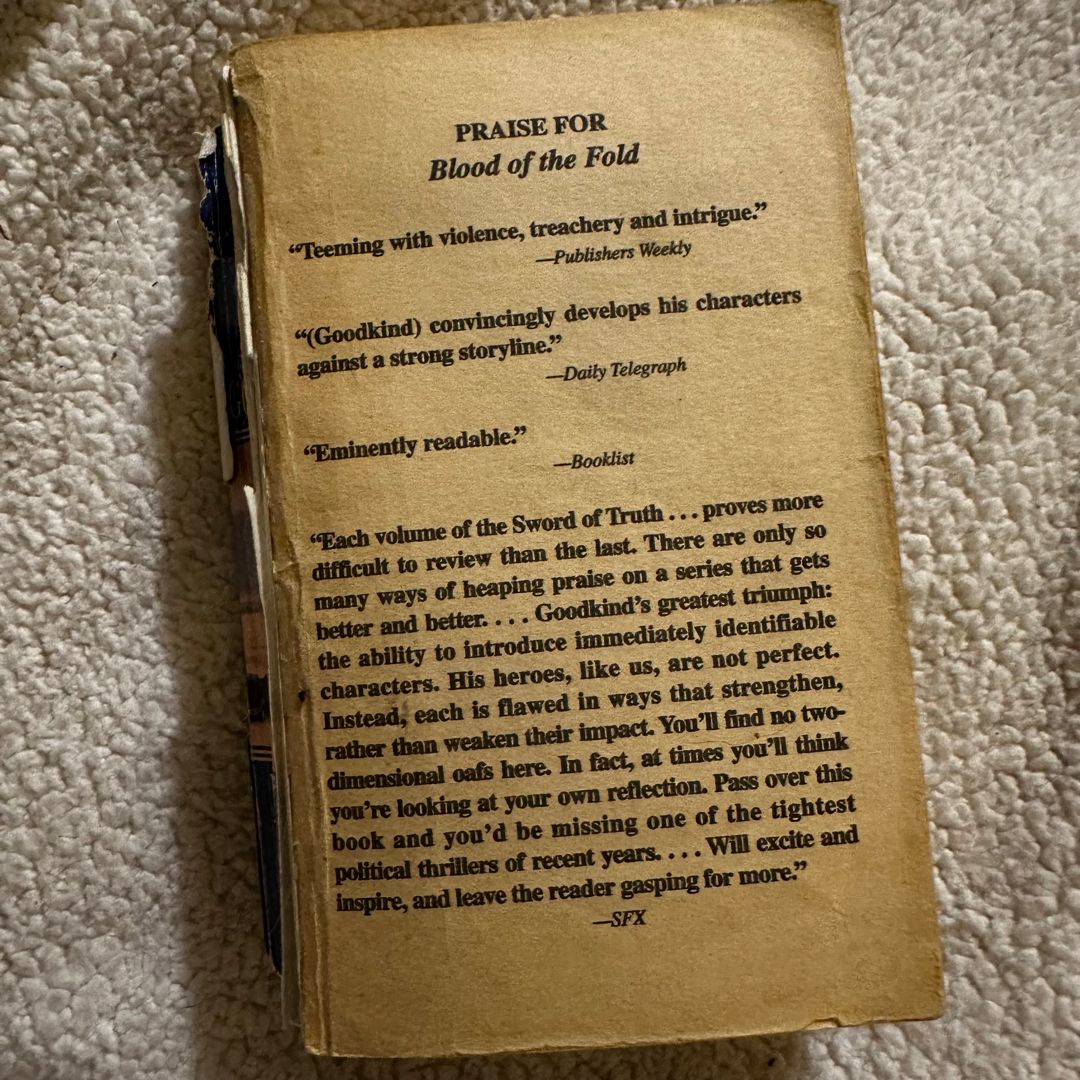 PRAISE FOR
Blood of the Fold
“Teeming with violence, treachery and intrigue.”
—Publishers Weekly
“(Goodkind) convincingly develops his characters
against a strong storyline.”
—Daily Telegraph
“Eminently readable.”
—Booklist
“Each volume of the Sword of Truth . . . proves more
difficult to review than the last. There are only so
many ways of heaping praise on a series that gets
better and better. . . . Goodkind’s greatest triumph:
the ability to introduce immediately identifiable
characters. His heroes, like us, are not perfect.
Instead, each is flawed in ways that strengthen,
rather than weaken their impact. You’ll find no two-
dimensional oafs here. In fact, at times you’ll think
you’re looking at your own reflection. Pass over this
book and you’d be missing one of the tightest
political thrillers of recent years. . . . Will excite and
inspire, and leave the reader gasping for more.”
—SFX